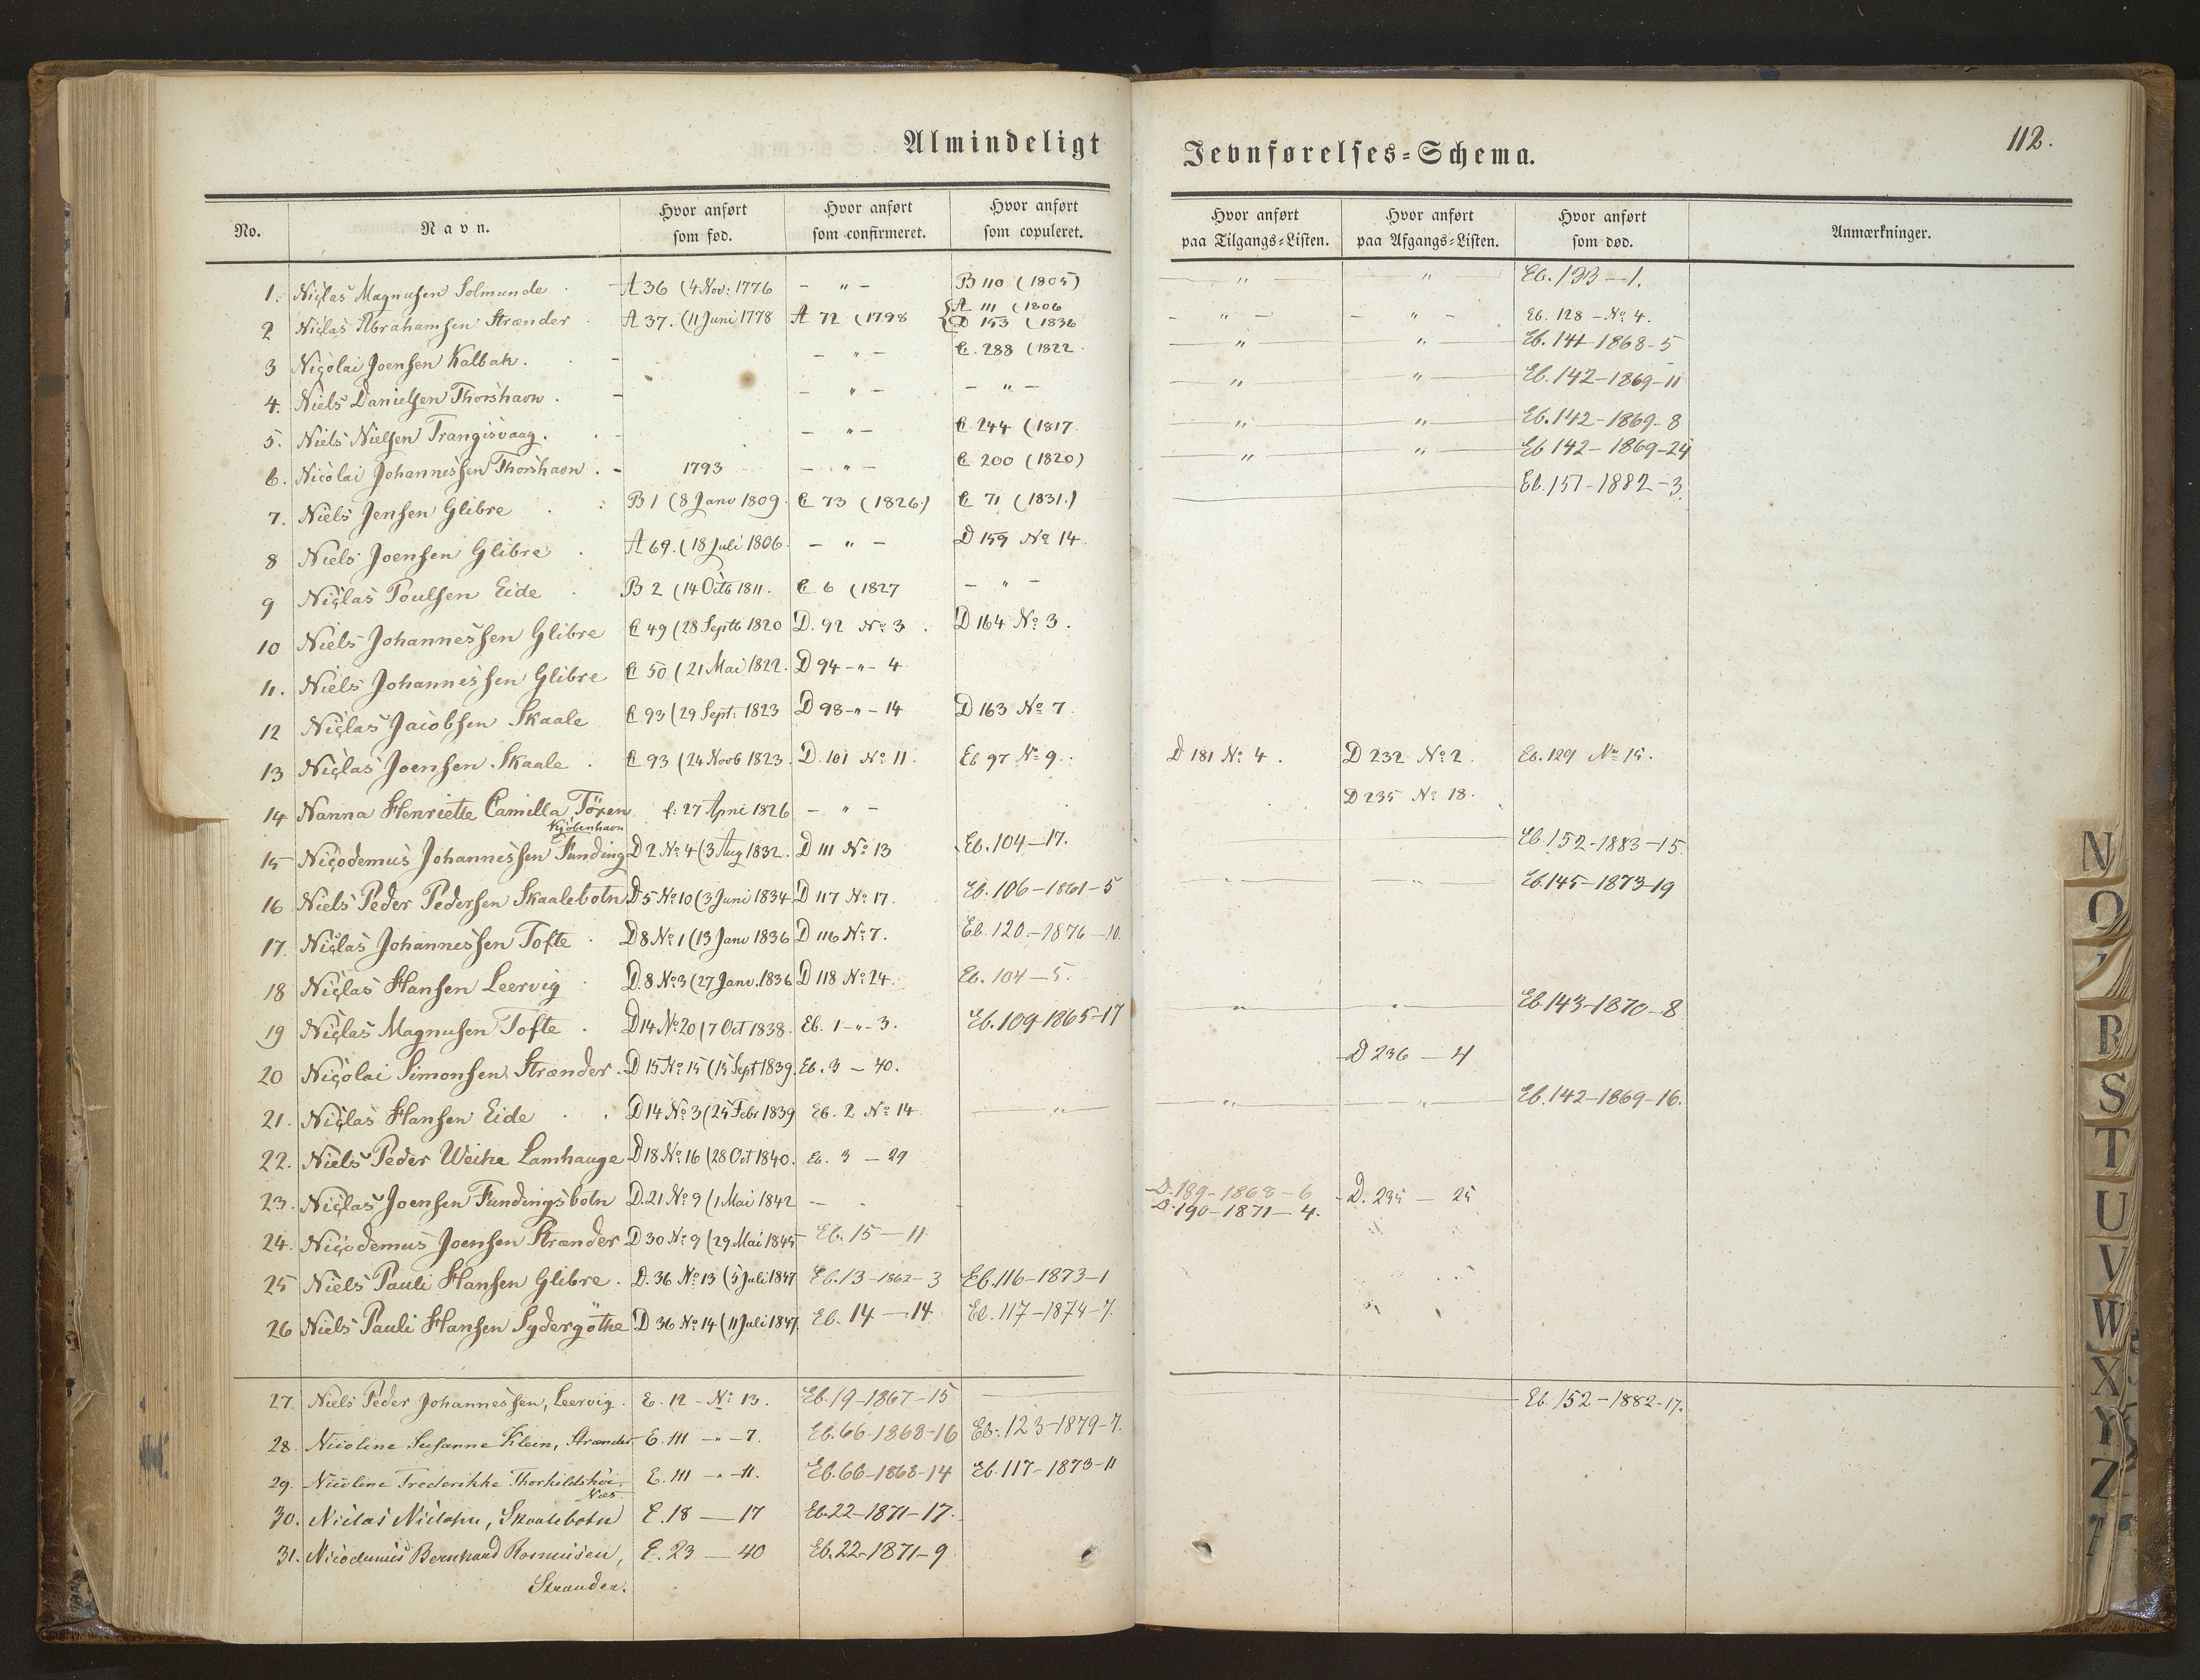 Almindeligt Jevnførelses=Schema.
112.
No. Navn. Hvor anført som fød. Hvor anført som confirmeret. Hvor anført som copuleret. Hvor anført paa Tilgangs=Listen. Hvor anført paa Afgangs=Listen. Hvor anført som død. Anmærkninger.
1. Niclas Magnusen Solmunde A 36 (4 Nov: 1776 – " – B 110 (1805) " " Eb. 133 – 1.
2 Niclas Abrahamsen Strænder A 37. (11 Juni 1778 A 72 (1798 {A 111 (1806 – " – – " – Eb. 128 – No 4.
{D 153 (1836
3 Nicolai Joensen Kalbak. – – " – C. 288 (1822 " " Eb. 141–1868–5
4. Niels Danielsen Thorshavn. – – " – – " – " " Eb. 142–1869–11
5. Niels Nielsen Trangisvaag. – – " – C 244 (1817 " " Eb. 142–1869–8
6. Nicolai Johannessen Thorshavn. – 1793 – " – C 200 (1820) " " Eb 142–1869–24
7. Niels Jensen Glibre B 1 (8 Janv 1809. C 73 (1826.) C 71 (1831.) Eb. 151–1882–3.
8 Niels Joensen Glibre A 69. (18 Juli 1806. – " – D 159 No 14.
9 Niclas Poulsen Eide B 2 (14 Octb 1811. C 6 (1827 – " –
10 Niels Johannessen Glibre C 49 (28 Septb 1820 D. 92 No 3. D 164 No 3.
11. Niels Johannessen Glibre C 50 (21 Mai 1822. D 94 – " – 4
12 Niclas Jacobsen Skaale C 93 (29 Sept: 1823 D 98 – " – 14 D 163 No 7
13 Niclas Joensen Skaale C 93 (24 Novb 1823. D. 101 No 11. Eb 97 No 9. D 181 No 4. D 232 No 2. Eb. 129 No 15.
14 Nanna Henriette Camilla Tören f: 27 April 1826 – " – D 235 No 18.
Kjöbenhavn
15 Nicodemus Johannessen Funding D 2 No 4 (3 Aug 1832. D 111 No 13 Eb. 104–17. Eb. 152–1883–15.
16 Niels Peder Pedersen Skaalebotn D 5 No 10 (3 Juni 1834 D 117 No 17. Eb. 106–1861–5 Eb. 145–1873–19
17. Niclas Johannessen Tofte D 8 No 1 (13 Janv 1836 D 116 No 7. Eb. 120–1876–10.
18 Niclas Hansen Leervig D. 8 No 3 (27 Janv. 1836 D 118 No 24. Eb. 104–5.
19 Niclas Magnusen Tofte D 14 No 20 (7 Oct 1838. Eb. 1 – " – 3. Eb. 109–1865–17 " " Eb. 143–1870–8
20 Nicolai Simonsen Strænder. D 15 No 15 (15 Sept 1839. Eb. 3 – 40. D 236 – 4
21. Niclas Hansen Eide D 14 No 3 (25 Febr 1839 Eb. 2 No 14 " " " Eb. 142–1869–16.
22. Niels Peder Weihe Lamhauge D 18 No 16 (28 Oct 1840. Eb. 3 – 29
23. Niclas Joensen Fundingsbotn D. 21 No 9 (1 Mai 1842 – D. 189–1868–6 D. 235 – 25
D. 190–1871–4.
24. Nicodemus Joensen Strænder D 30 No 9 (29 Mai 1845 Eb. 15 – 11
25 Niels Pauli Hansen Glibre. D. 36 No 13 (5 Juli 1847 Eb. 13–1862–3 Eb. 116–1873–1
26 Niels Pauli Hansen Sydergöthe D 36 No 14 (11 Juli 1847. Eb. 14 – 14 Eb. 117–1874–7.
27. Niels Peder Johannessen, Leervig. E. 12 – No 13. Eb. 19–1867–15 Eb. 152–1882–17.
28. Nicoline Susanne Klein, Strænder E. 111 – " – 7. Eb. 66–1868–16 Eb. 123–1879–7.
29. Nicoline Frederikke Thorkildshöi, E. 111 – " – 11. Eb. 66–1868–14 Eb. 117–1873–11
Næs.
30. Niclas Niclasen, Skaalebotn E. 18 – 17 Eb. 22–1871–17.
31. Nicodemus Bernhard Rasmusen, E. 23 – 40 Eb. 22–1871–9
Strander.
N
O
R
S
T
U
V
W
X
Y
Z